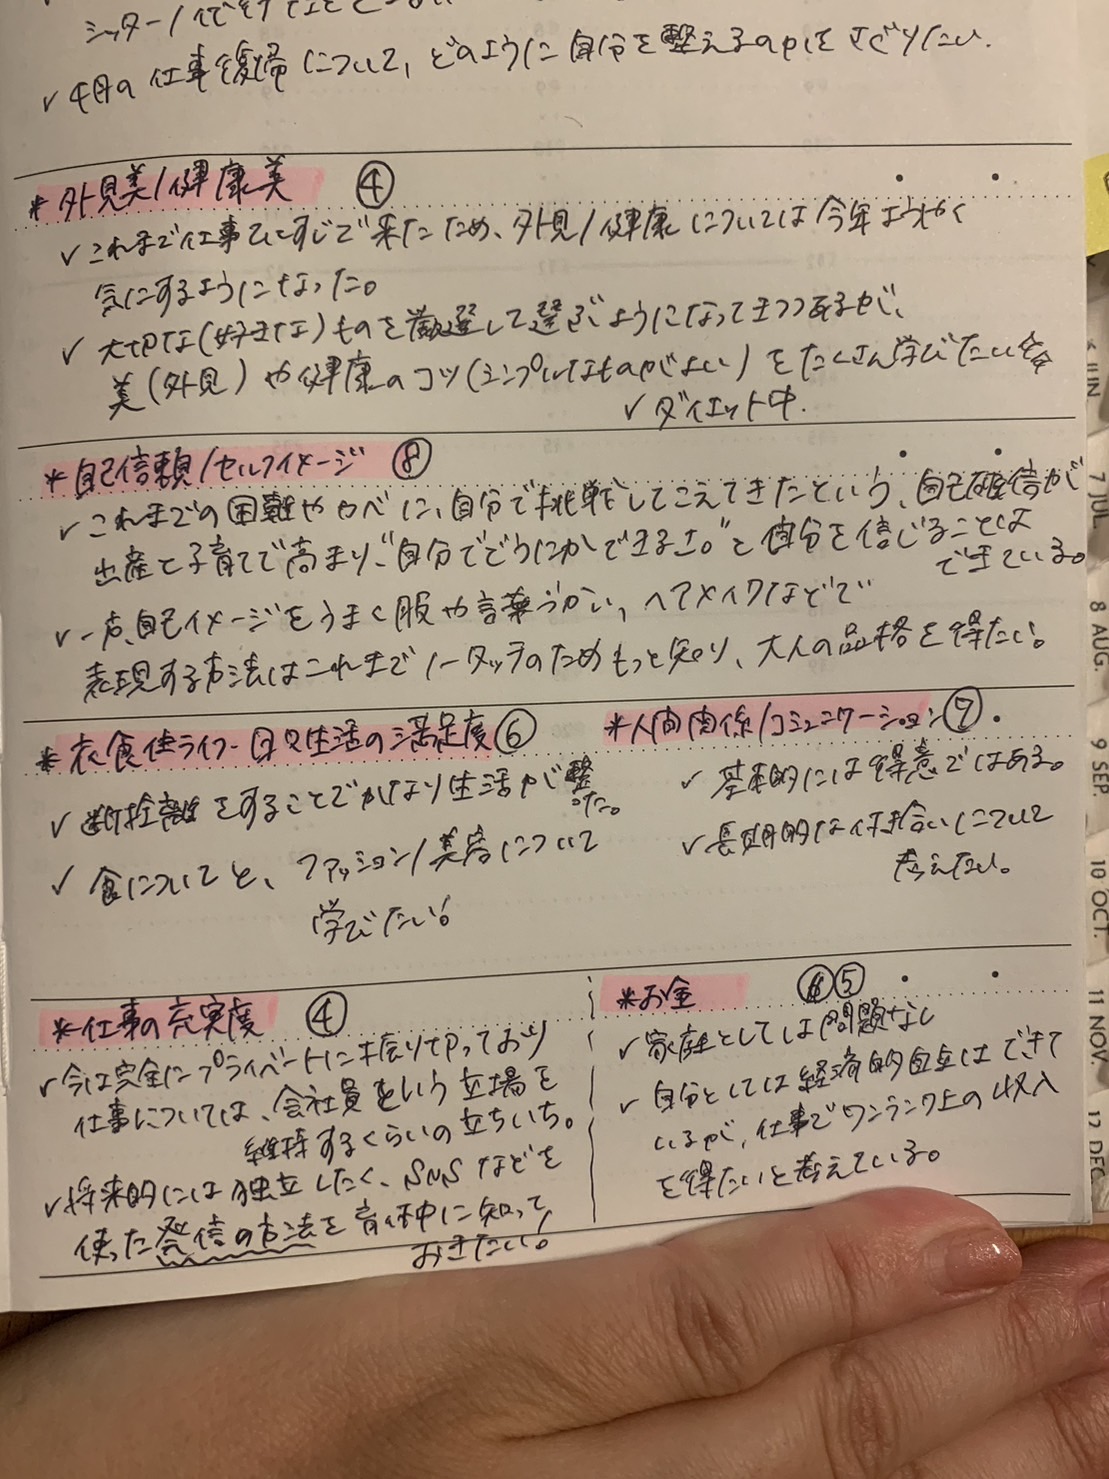 シッター/
✓ 4月の仕事復帰について、どのように自分を整えるのかをさぐりたい.
* 外見美/健康美 ④
✓ これまで仕事ひとすじで来たため、外見/健康については今年ようやく
気にするようになった。
✓ 大切な(好きな)ものを厳選して選ぶようになってきつつあるが、
美(外見)や健康のコツ(シンプルなものがよい)をたくさん学びたい
✓ ダイエット中.
* 自己信頼/セルフイメージ ⑧
✓ これまでの困難やカベに、自分で挑戦してこえてきたという、自己確信が
出産と子育てで高まり、"自分でどうにかできるさ。"と自分を信じることは
できている。
✓ 一方、自己イメージをうまく服や言葉づかい、ヘアメイクなどで
表現する方法はこれまでノータッチのためもっと知り、大人の品格を得たい。
* 衣食住ライフ・日々生活の満足度 ⑥
✓ 断捨離をすることでかなり生活が整
った。
✓ 食についてと、ファッション/美容について
学びたい!
* 人間関係/コミュニケーション ⑦
✓ 基本的には得意ではある。
✓ 長期的な付き合いについて
考えたい。
* 仕事の充実度 ④
✓ 今は完全にプライベートに振り切っており
仕事については、会社員という立場を
維持するくらいの立ちいち。
✓ 将来的には独立したく、SNSなどを
使った発信の方法を育休中に知って
おきたい!
* お金 ⑤
✓ 家庭としては問題なし
✓ 自分としては経済的自立はできて
いるが、仕事でワンランク上の収入
を得たいと考えている。
JUN
7 JUL
8 AUG.
9 SEP.
10 OCT.
11 NOV.
12 DEC